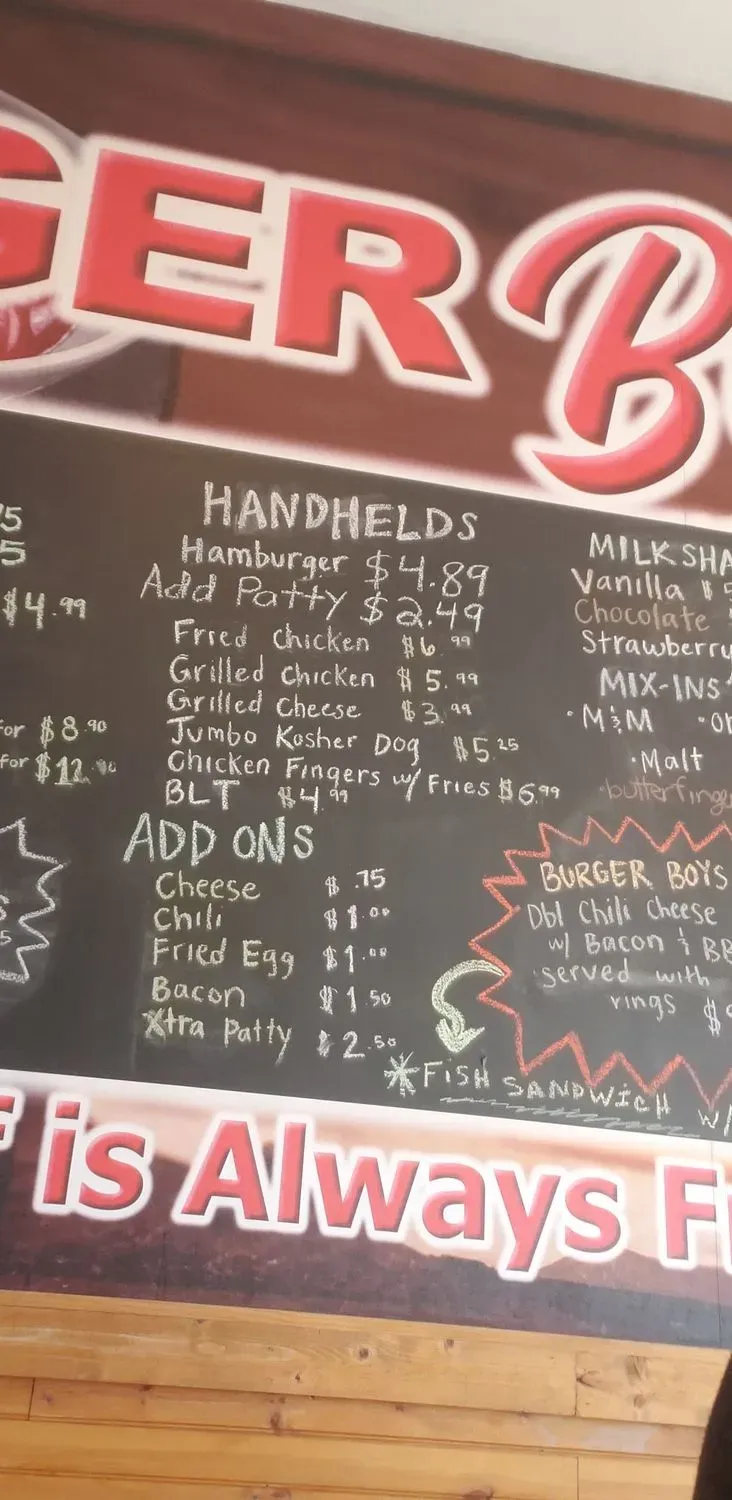 GER B
HANDHELDS
Hamburger $4.89
Add Patty $2.49
Fried Chicken $6.99
Grilled Chicken $5.99
Grilled Cheese $3.99
Jumbo Kosher Dog $5.25
Chicken Fingers w/ Fries $6.99
BLT $4.99
ADD ONS
Cheese $.75
Chili $1.00
Fried Egg $1.00
Bacon $1.50
Xtra Patty $2.50
$4.99
for $8.90
for $12.90
MILKSHA
Vanilla $5
Chocolate
Strawberry
MIX-INS
·M&M
·Malt
·butterfinge
BURGER BOYS
Dbl Chili Cheese
w/ Bacon & BB
served with
rings $9
*FISH SANDWICH w/
is Always Fr